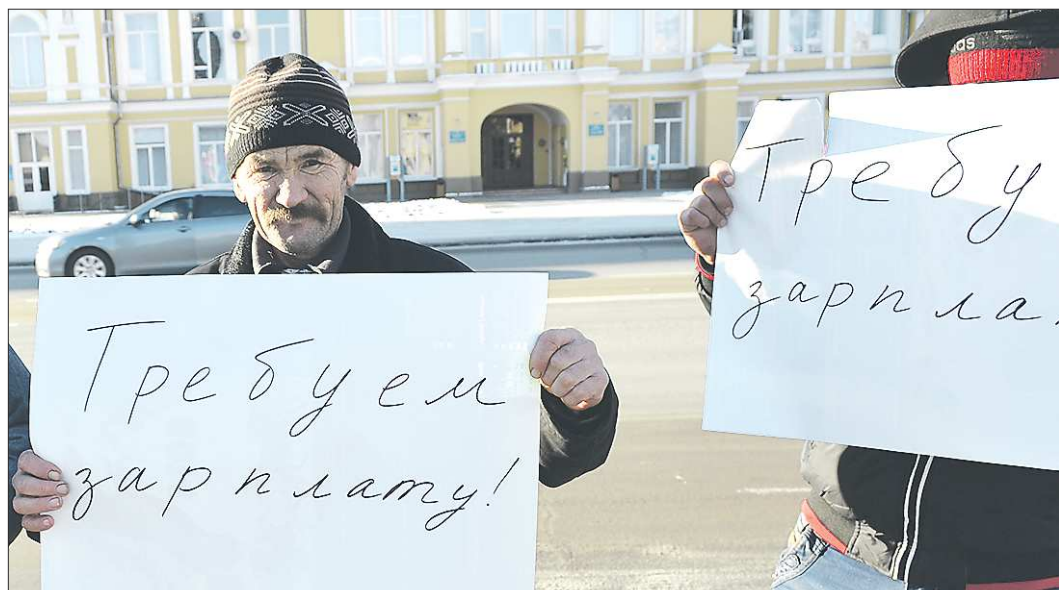 Требуем
зарплату!
Требу
зарпла
das